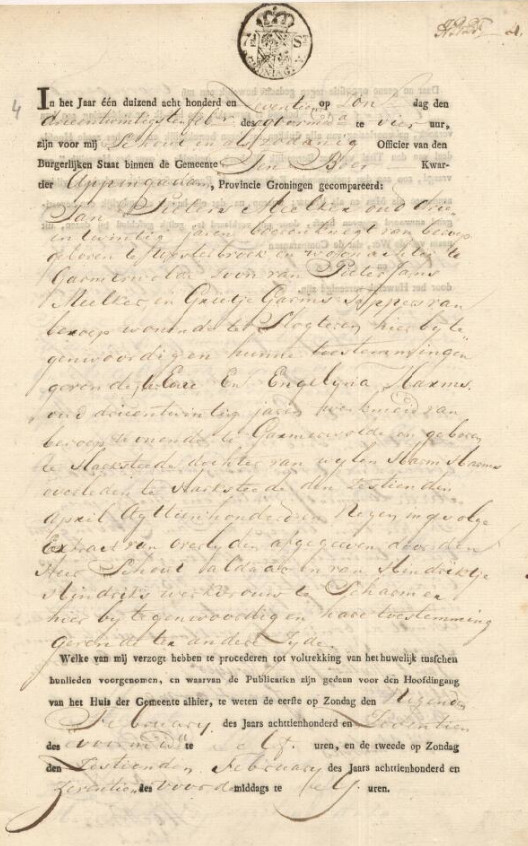 4
In het Jaar één duizend acht honderd en Zeventien op Zon dag den
drieentwintigste febr des namiddags te vier uur,
zijn voor mij Schout en als zodanig Officier van den
Burgerlijken Staat binnen de Gemeente Ten Boer Kwar-
tier Appingedam, Provincie Groningen gecompareerd:
Jan Pieters Meelker oud drie
en twintig jaren van beroep
geboren te Westerbroek en woonachtig te
Garmerwolde zoon van Pieter Jans
Meelker, en Grietje Garms van
beroep wonende te Slogteren hier bij te
genwoordig en hunne toestemmingen
gevende, ter Eenre En Engelyna Harms
oud drieentwintig jaren werkmeid van
beroep wonende te Garmerwolde en geboren
te Harkstede dochter van wylen Harm Harms
overleden te Harkstede den Zestienden
April Agttienhonderd en Negen ingevolge
Extract van overlyden afgegeven door den
Heer Schout en van Hindriktje
Hindriks werkvrouw te Scharmer
hier by tegenwoordig en hare toestemming
gevende ter andere Zyde.
Welke van mij verzogt hebben te procederen tot voltrekking van het huwelijk tusschen
hunlieden voorgenomen, en waarvan de Publicatien zijn gedaan voor den Hoofdingang
van het Huis der Gemeente alhier, te weten de eerste op Zondag den Negenden
February des Jaars achttienhonderd en Zeventien
des voormid te uren, en de tweede op Zondag
den Zestienden February des Jaars achttienhonderd en
Zeventien des voor middags te uren.